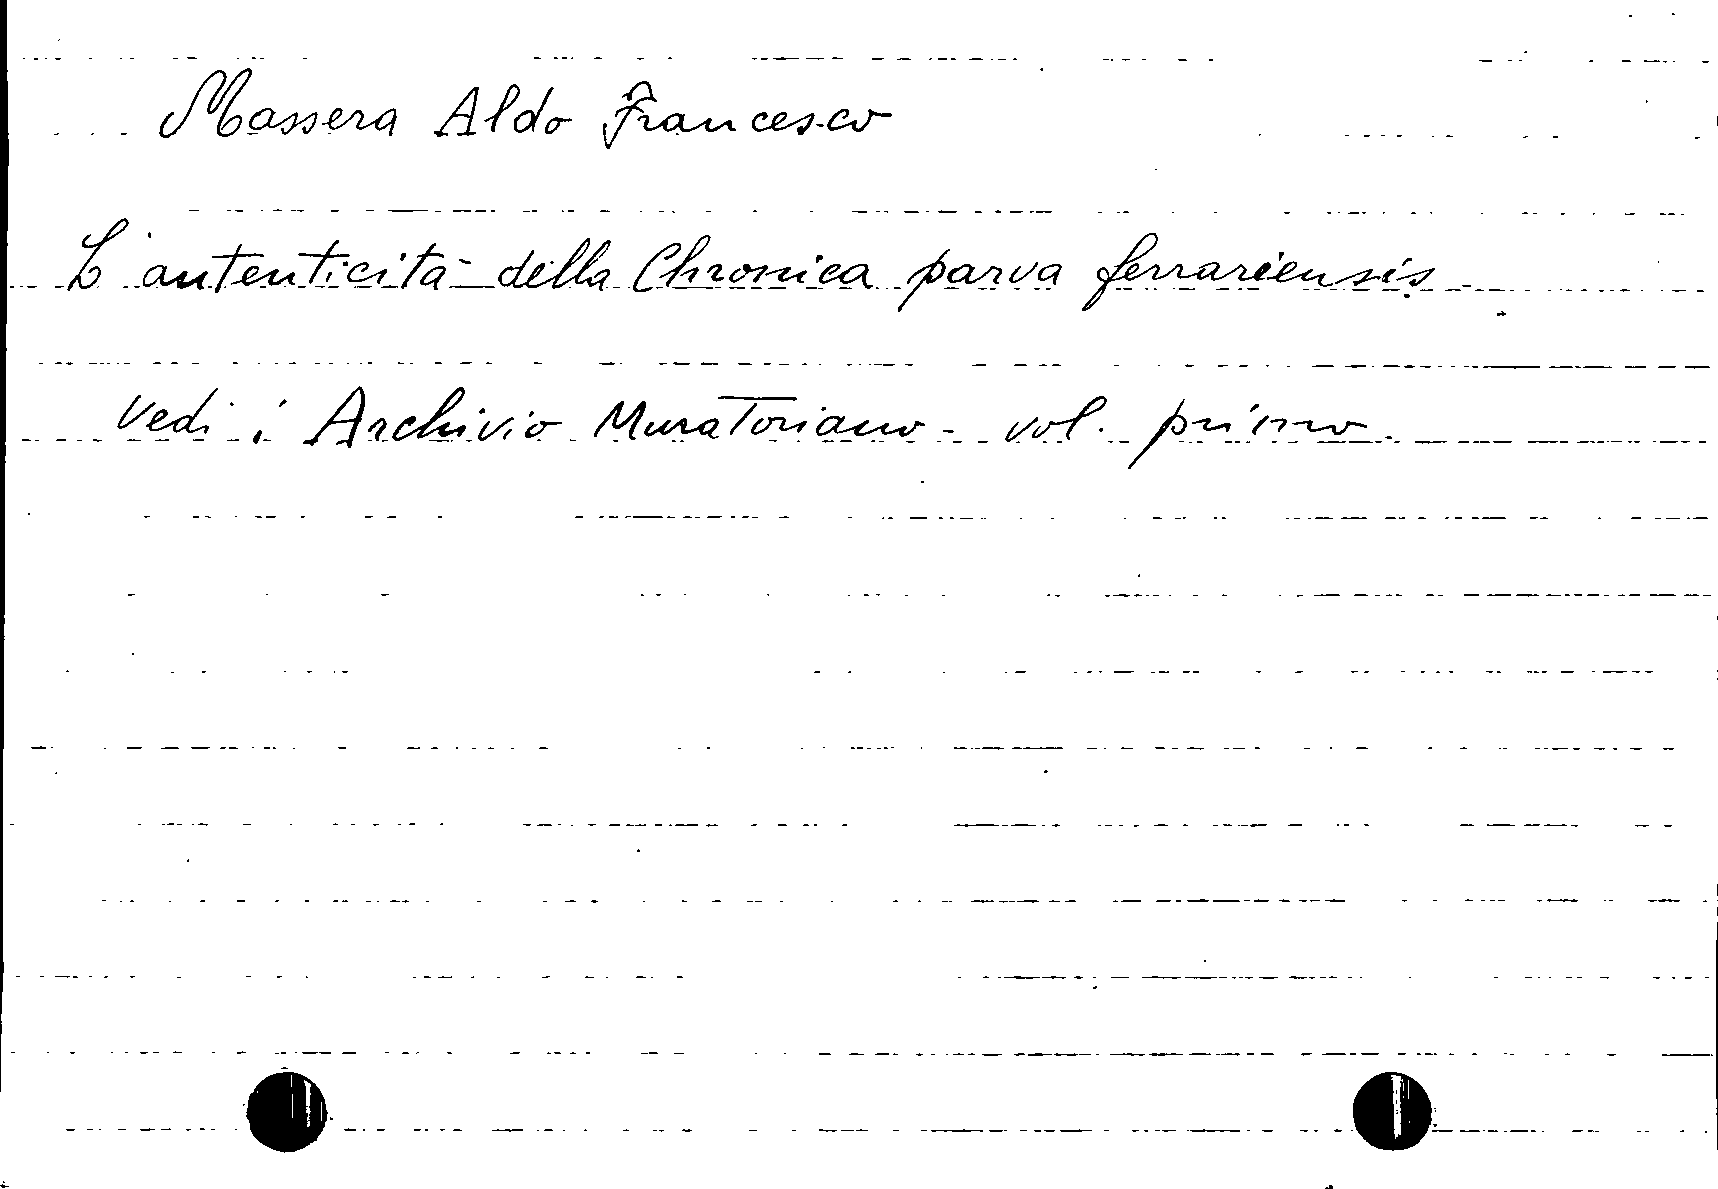 Massera Aldo Francesco
L'autenticità della Chronica parva ferrariensis
Vedi: Archivio Muratoriano - vol. primo.